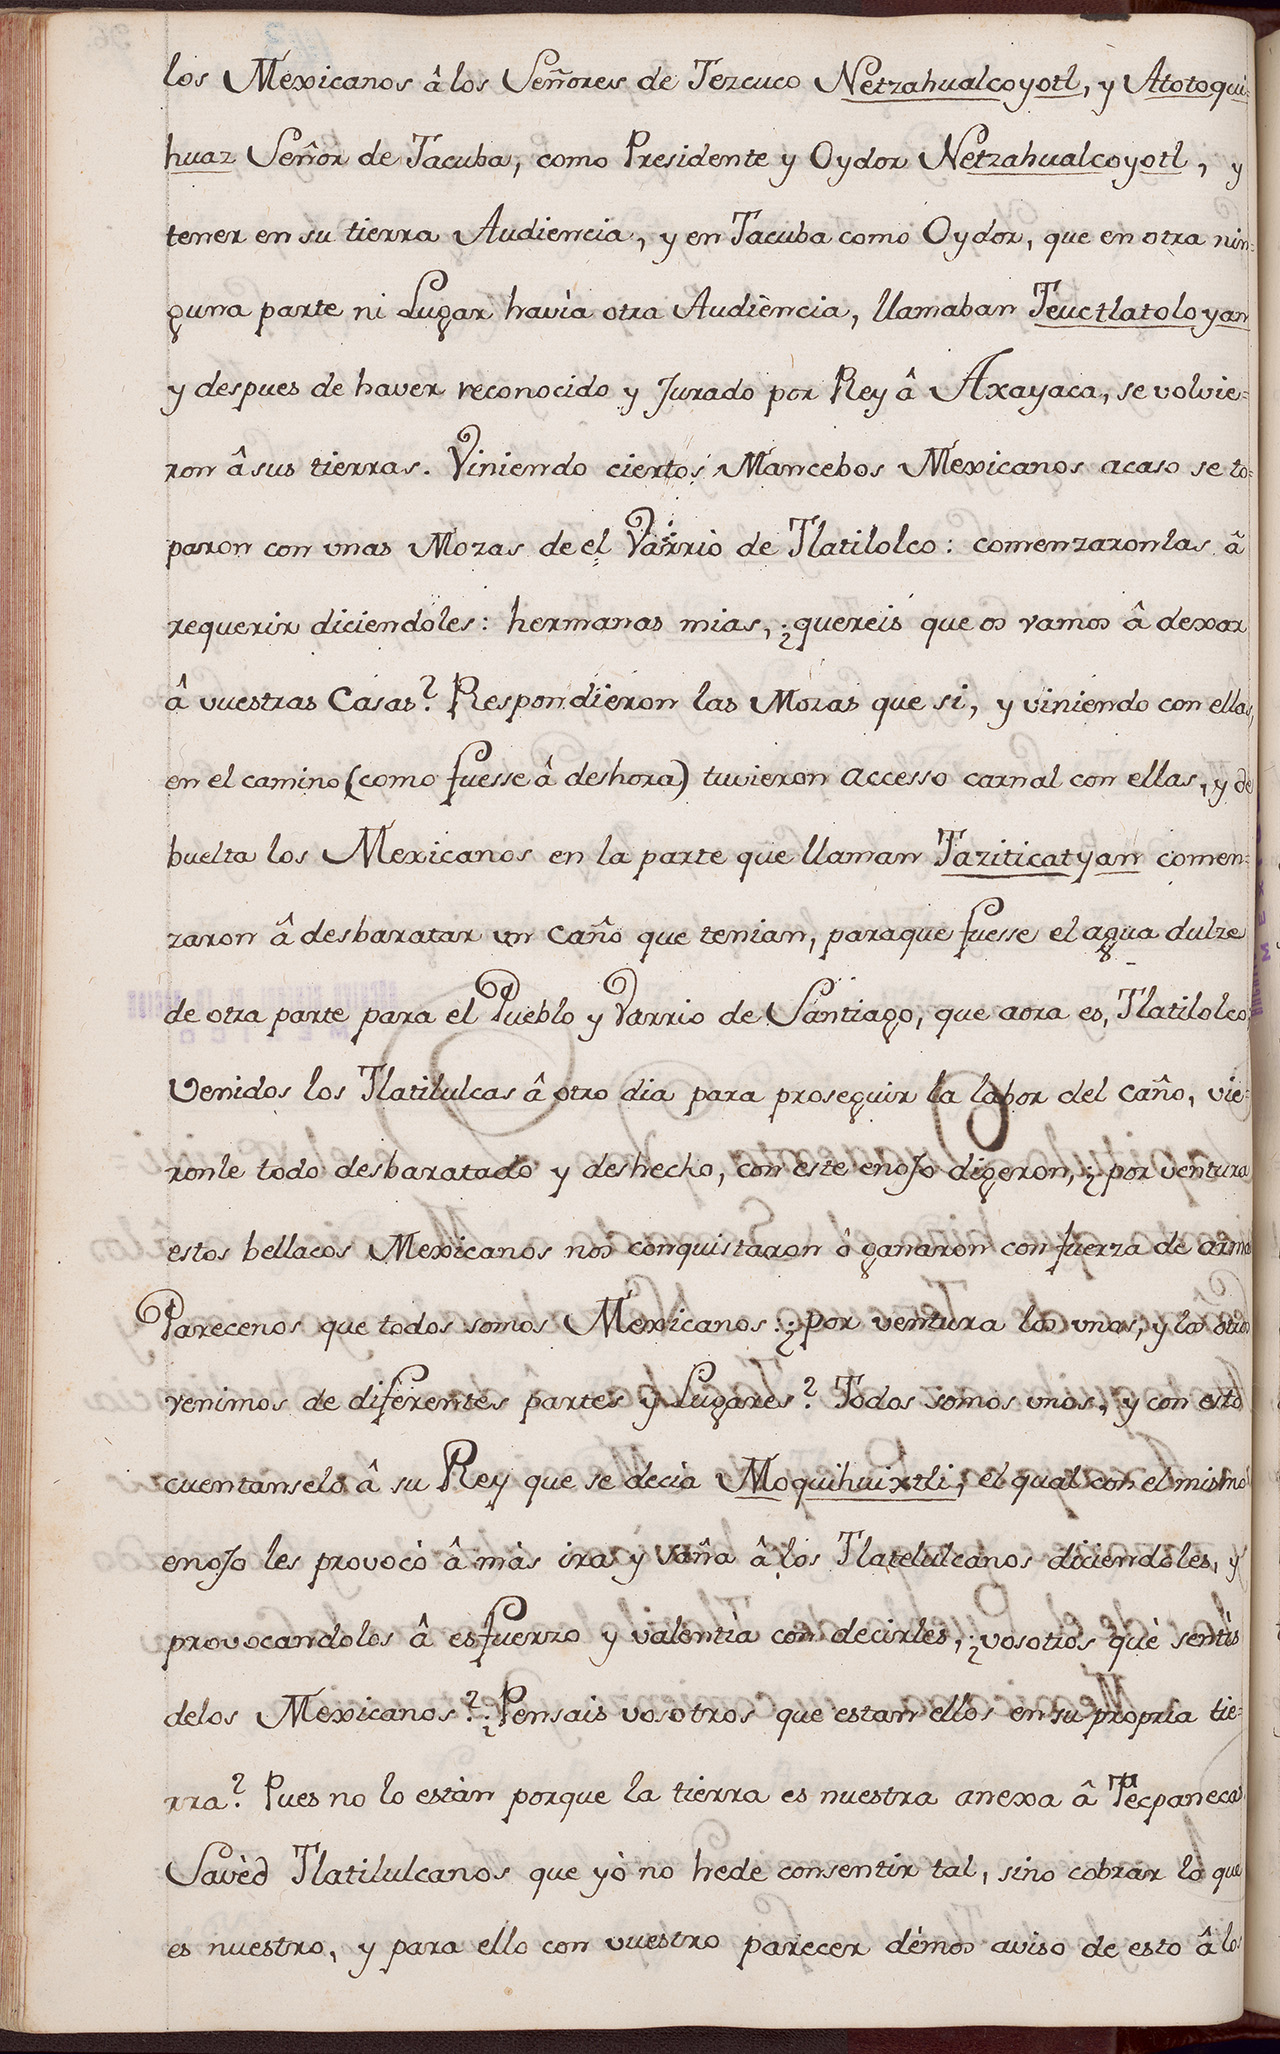 los Mexicanos â los Señores de Tezcuco Netzahualcoyotl, y Atotoqui=
huaz Señor de Tacuba, como Presidente y Oydor Netzahualcoyotl, y
tener en su tierra Audiencia, y en Tacuba como Oydor, que en otra nin=
guna parte ni Lugar havìa otra Audiència, llamaban Teuctlatoloyan
y despues de haver reconocido y Jurado por Rey â Axayaca, se volvie=
ron â sus tierras. Viniendo ciertos Mancebos Mexicanos acaso se to=
paron con vnas Mozas de el Varrio de Tlatilolco: comenzaronlas â
requerir diciendoles: hermanas mias, ¿quereis que os vamos â dexar
â vuestras Casas? Respondieron las Mozas que si, y viniendo con ellas,
en el camino (como fuesse â deshora) tuvieron accesso carnal con ellas, y de
buelta los Mexicanos en la parte que llaman Taziticatyan comen=
zaron â desbaratar vn Caño que tenian, paraque fuesse el agua dulze
de otra parte para el Pueblo y Varrio de Santiago, que aora es, Tlatilolco
Venidos los Tlatilulcas â otro dia para proseguir la labor del caño, vie=
ronle todo desbaratado y deshecho, con este enoJo digeron, ¿por ventura
estos bellacos Mexicanos nos conquistaron ô ganaron con fuerza de arma
Parecenos que todos somos Mexicanos: ¿por ventura los vnos, y los otros
venimos de diferentes partes y Lugares? Todos somos vnos, y con esto
cuentanselo â su Rey que se decìa Moquihuixtli, el qual con el mismo
enoJo les provocò â màs ira y saña â los Tlatelulcanos diciendoles, y
provocandolos â esfuerzo y valentìa con decirles, ¿vosotros què sentìs
delos Mexicanos? ¿Pensais vosotros que estan ellos en su propria tie=
rra? Pues no lo estàn porque la tierra es nuestra anexa â Tecpanecas
Savèd Tlatilulcanos que yò no hede consentir tal, sino cobrar lo que
es nuestro, y para ello con vuestro parecer dèmos aviso de esto â los